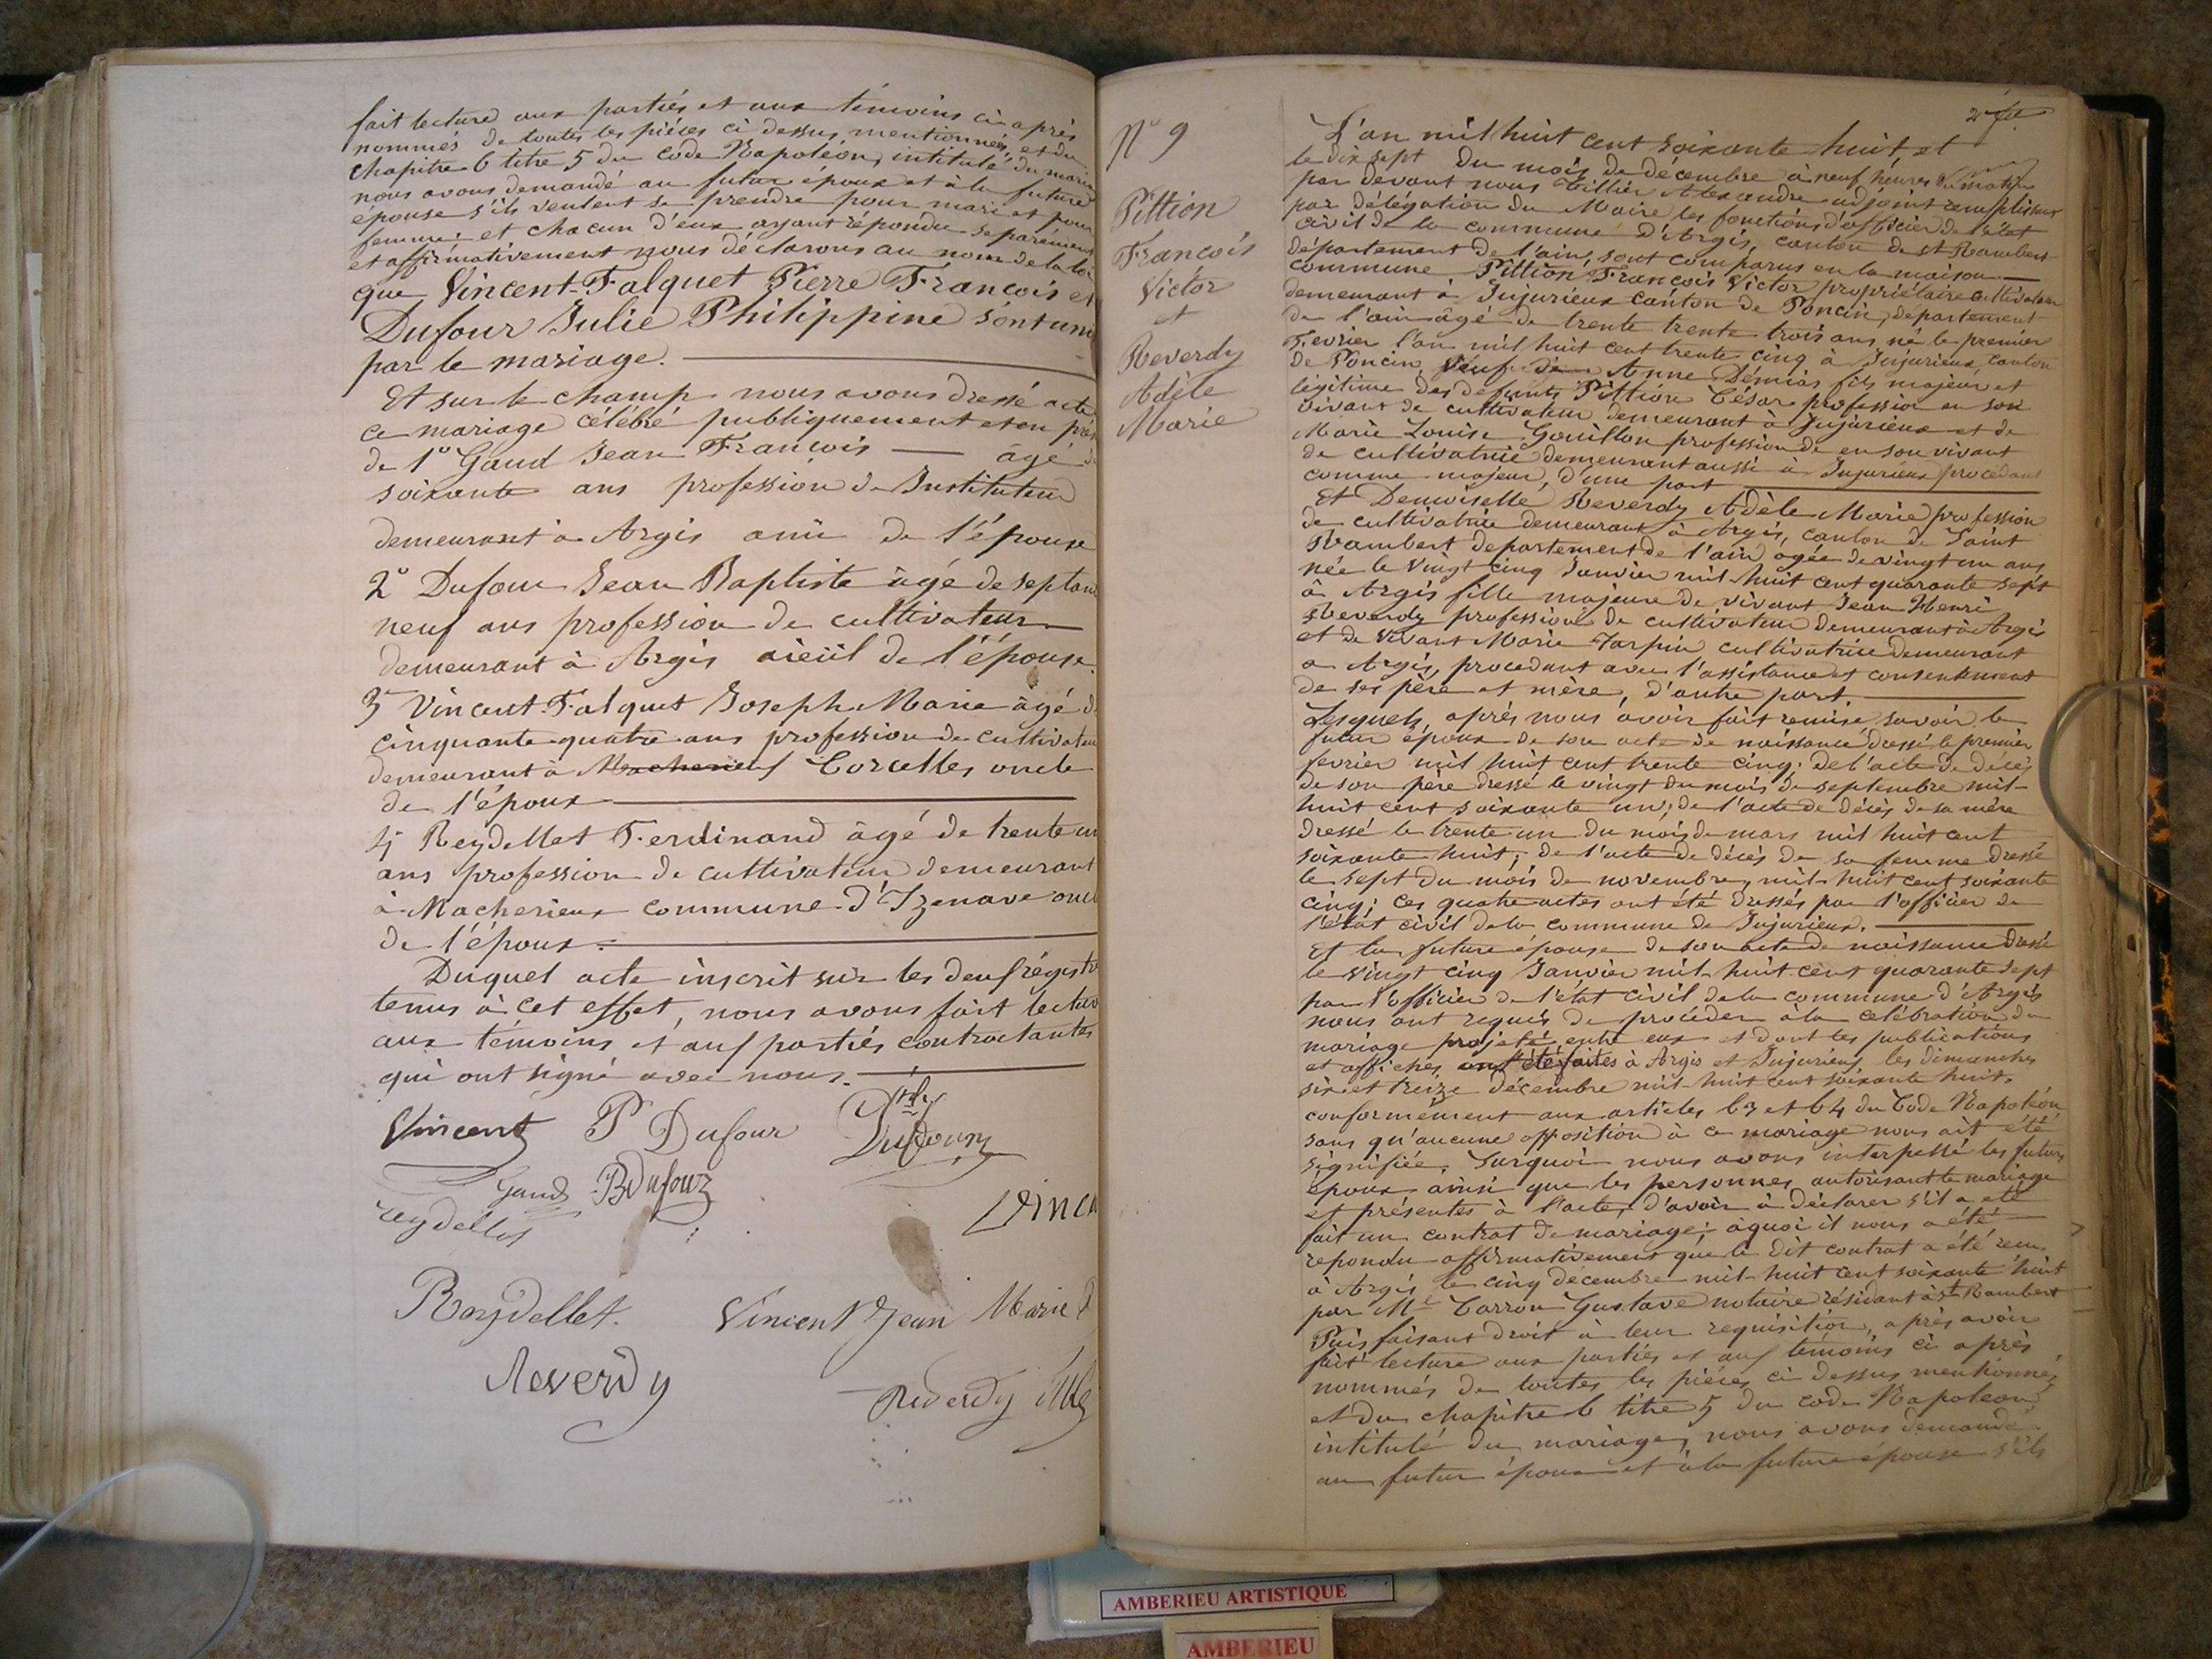 fait lecture aux partiés et aux témoins ci après
nommés de toutes les pièces ci dessus mentionnées, et du
chapitre 6 titre 5 du code Napoléon, intitulé du maria
nous avons demandé au futur époux et à la future
épouse s'ils veulent se prendre pour mari et pour
femme: et chacun d'eux ayant répondu separément
et affirmativement nous déclarons au nom de la loi
que Vincent-Falquet Pierre François et
Dufour Julie Philippine sont unis
par le mariage.
Et sur le champ nous avons dressé acte
ce mariage célébré publiquement et en prés
de 1° Gaud Jean François — âgé de
soixante ans profession d'Instituteur
demeurant à Argis ami de l'épouse
2° Dufour Jean Baptiste âgé de septante
neuf ans profession de cultivateur
demeurant à Argis aïeul de l'épouse.
3° Vincent-Falquet Joseph Marie âgé de
cinquante quatre ans profession de cultivateur
demeurant à Macherieux Corcelles oncle
de l'époux
4 Reydellet Ferdinand âgé de trente un
ans profession de cultivateur demeurant
à Macherieux commune d'Izenave oncl
de l'époux.
Duquel acte inscrit sur les deux régistr
tenus à cet effet, nous avons fait lectur
aux témoins et aux partiés contractantes
qui ont signé avec nous.
Vincent P Dufour Dufour
Gaud B Dufour
reydellet Vince
Reydellet. Vincent Jean Marie
Reverdy Reverdy
N° 9
Pittion
François
Victor
et
Reverdy
Adèle
Marie
L'an mil huit cent soixante huit et
le dix sept du mois de décembre à neuf heures du matin
par devant nous Tillier Alexandre adjoint remplissant
par délégation du Maire les fonctions d'officier de l'état
civil de la commune d'Argis, canton de St Rambert
département de l'ain, sont comparus en la maison
commune Pittion François Victor propriétaire cultivateur
demeurant à Jujurieux canton de Poncin, departement
de l'ain âgé de trente trente trois ans, né le premier
Fevrier l'an mil huit cent trente cinq à Jujurieux, canton
de Poncin, veuf de Anne Démias fils majeur et
légitime des défunts Pittion César profession en son
vivant de cultivateur demeurant à Jujurieux et de
Marie Louise Gouillon profession de en son vivant
de cultivatrice demeurant aussi à Jujurieux, procédant
comme majeur, d'une part
Et Demoiselle Reverdy Adèle Marie profession
de cultivatrice demeurant à Argis, canton de Saint
Rambert departement de l'ain agée de vingt un ans
née le vingt cinq Janvier mil huit cent quarante sept
à Argis fille majeure de vivant Jean Henri
Reverdy profession de cultivateur demeurant à Argis
et de vivant Marie Tarpin cultivatrice demeurant
a Argis, procedant avec l'assistance et consentement
de ses père et mère, d'autre part.
Lesquels, après nous avoir fait remise, savoir le
futur époux de son acte de naissance dressé le premier
fevrier mil huit cent trente cinq; de l'acte de décès
de son père dressé le vingt du mois de septembre mil
huit cent soixante un; de l'acte de décès de sa mère
dressé le trente un du mois de mars mil huit cent
soixante huit; de l'acte de décès de sa femme dressé
le sept du mois de novembre, mil huit cent soixante
cinq; ces quatre actes ont été dressés par l'officier de
l'état civil de la commune de Jujurieux.
Et la future épouse de son acte de naissance dressé
le vingt cinq Janvier mil huit cent quarante sept
par l'officier de l'état civil de la commune d'Argis
nous ont requis de procéder à la célébration du
mariage projeté entre eux et dont les publications
et affiches ont été faites à Argis et Jujurieux les dimanches
six et treize décembre mil huit cent soixante huit.
conformément aux articles 63 et 64 du Code Napoléon
sans qu'aucune opposition à ce mariage nous ait été
signifiée. Surquoi nous avons interpellé les futurs
époux, ainsi que les personnes autorisant le mariage
et présentes à l'acte, d'avoir à déclarer s'il a été
fait un contrat de mariage; àquoi il nous a été
repondu affirmativement que le dit contrat a été reçu
à Argis le cinq decembre mil huit cent soixante huit
par Me Carron Gustave notaire résidant à St Rambert
Puis faisant droit à leur requisition, après avoir
fait lecture aux parties et aux témoins ci après
nommés de toutes les pièces ci dessus mentionnés
et du chapitre 6 titre 5 du code Napoleon
intitulé du mariage, nous avons demandé
au futur époux et à la future épouse s'ils
AMBERIEU ARTISTIQUE
AMBERIEU